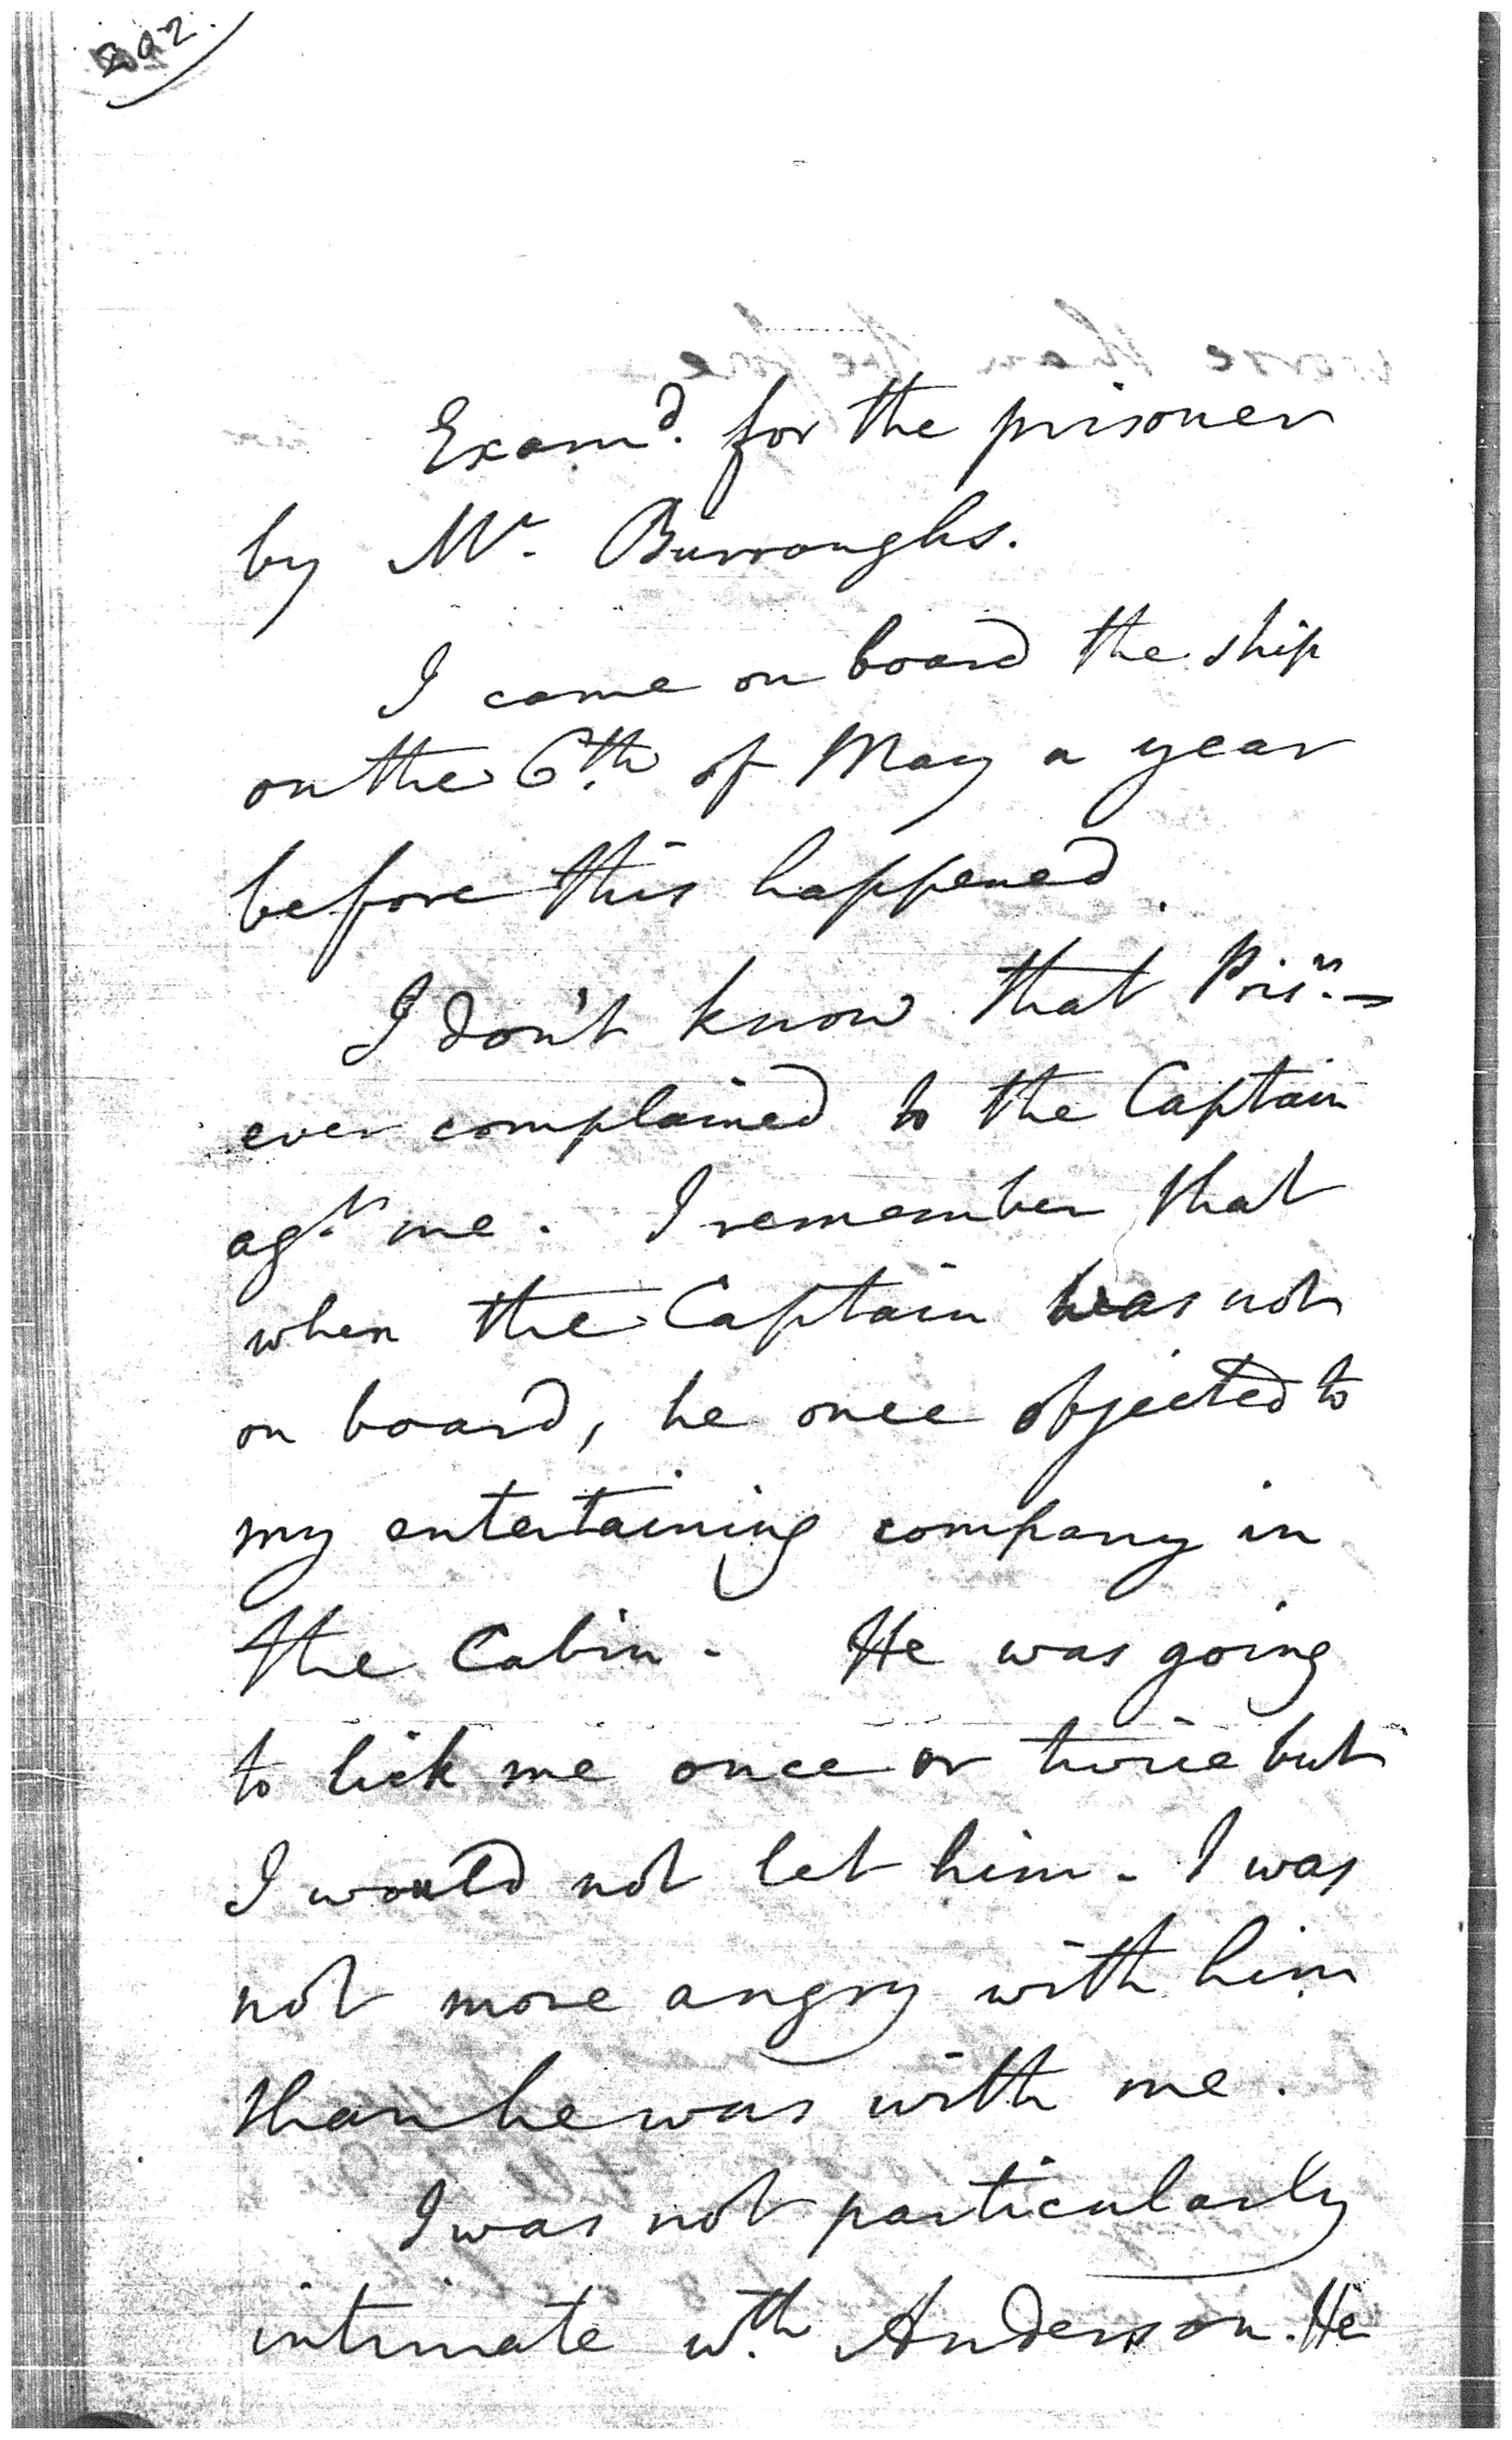 Examd. for the prisoner
by Mr. Burroughs.
I came on board the ship
on the 6th of May a year
before this happened.
I don't know that Prisr.
ever complained to the Captain
agt. me. I remember that
when the Captain was not
on board, he once objected to
my entertaining company in
the Cabin - He was going
to lick me once or twice but
I would not let him - I was
not more angry with him
than he was with me.
I was not particularly
intimate wth. Anderson. He